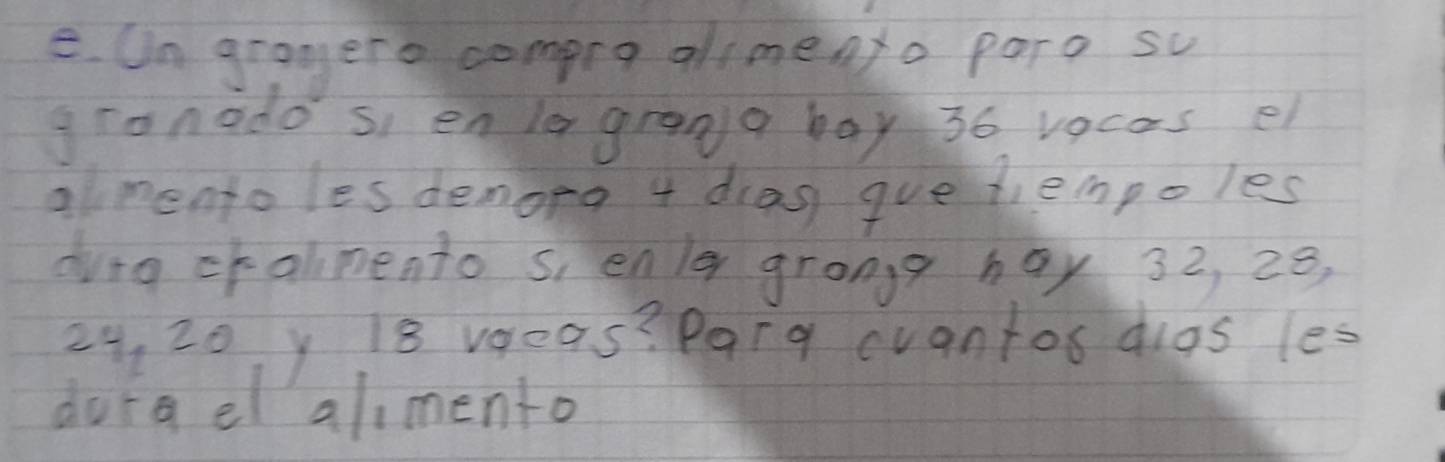 e. Un granjero compra alimento para su
granado si en la granja hay 36 vacas el
alimento les demora 4 dias, que tiempo les
dura el alimento si en la granja hay 32, 28,
24, 20 y 18 vacas? Para cuantos dias les
dura el alimento